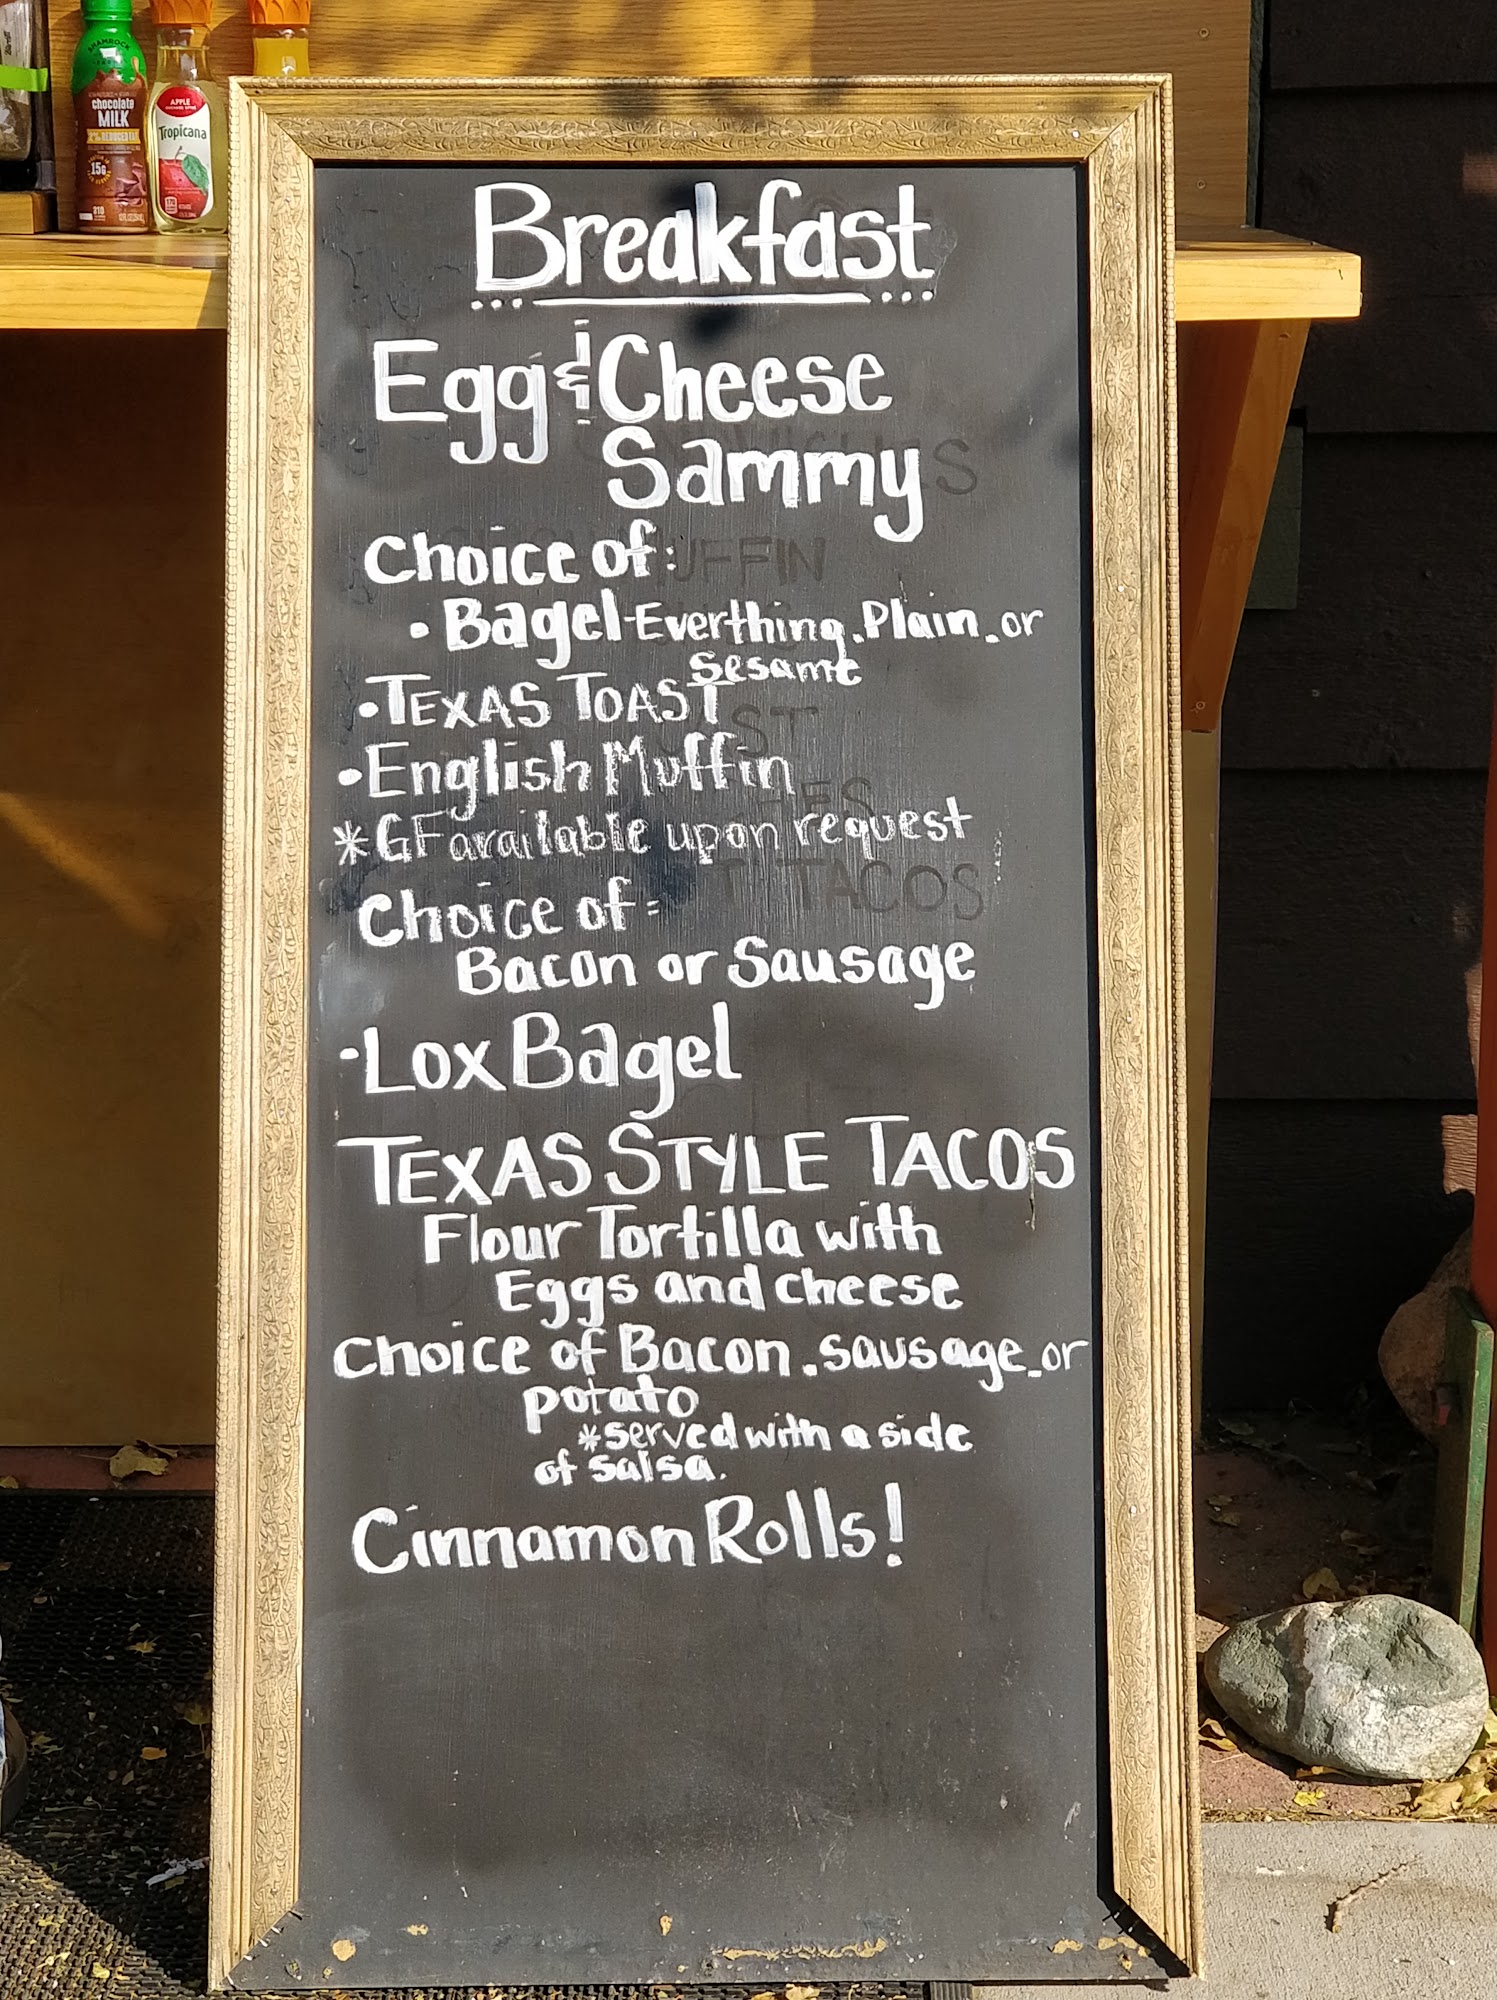 SHAMROCK
chocolate
MILK
APPLE
Tropicana
Breakfast
Egg & Cheese
Sammy
Choice of:
• Bagel - Everthing, Plain, or
Sesame
• TEXAS TOAST
• English Muffin
* GF available upon request
Choice of:
Bacon or Sausage
- Lox Bagel
TEXAS STYLE TACOS
Flour Tortilla with
Eggs and cheese
Choice of Bacon, sausage, or
potato
* served with a side
of salsa.
Cinnamon Rolls!